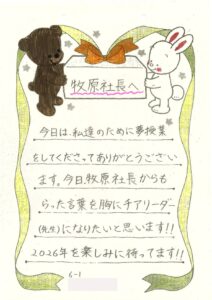 牧原社長へ
今日は、私達のために夢授業
をしてくださってありがとうござい
ます。今日、牧原社長からも
らった言葉を胸にチアリーダー
(先生)になりたいと思います!!
2026年を楽しみに待ってます!!
6-1